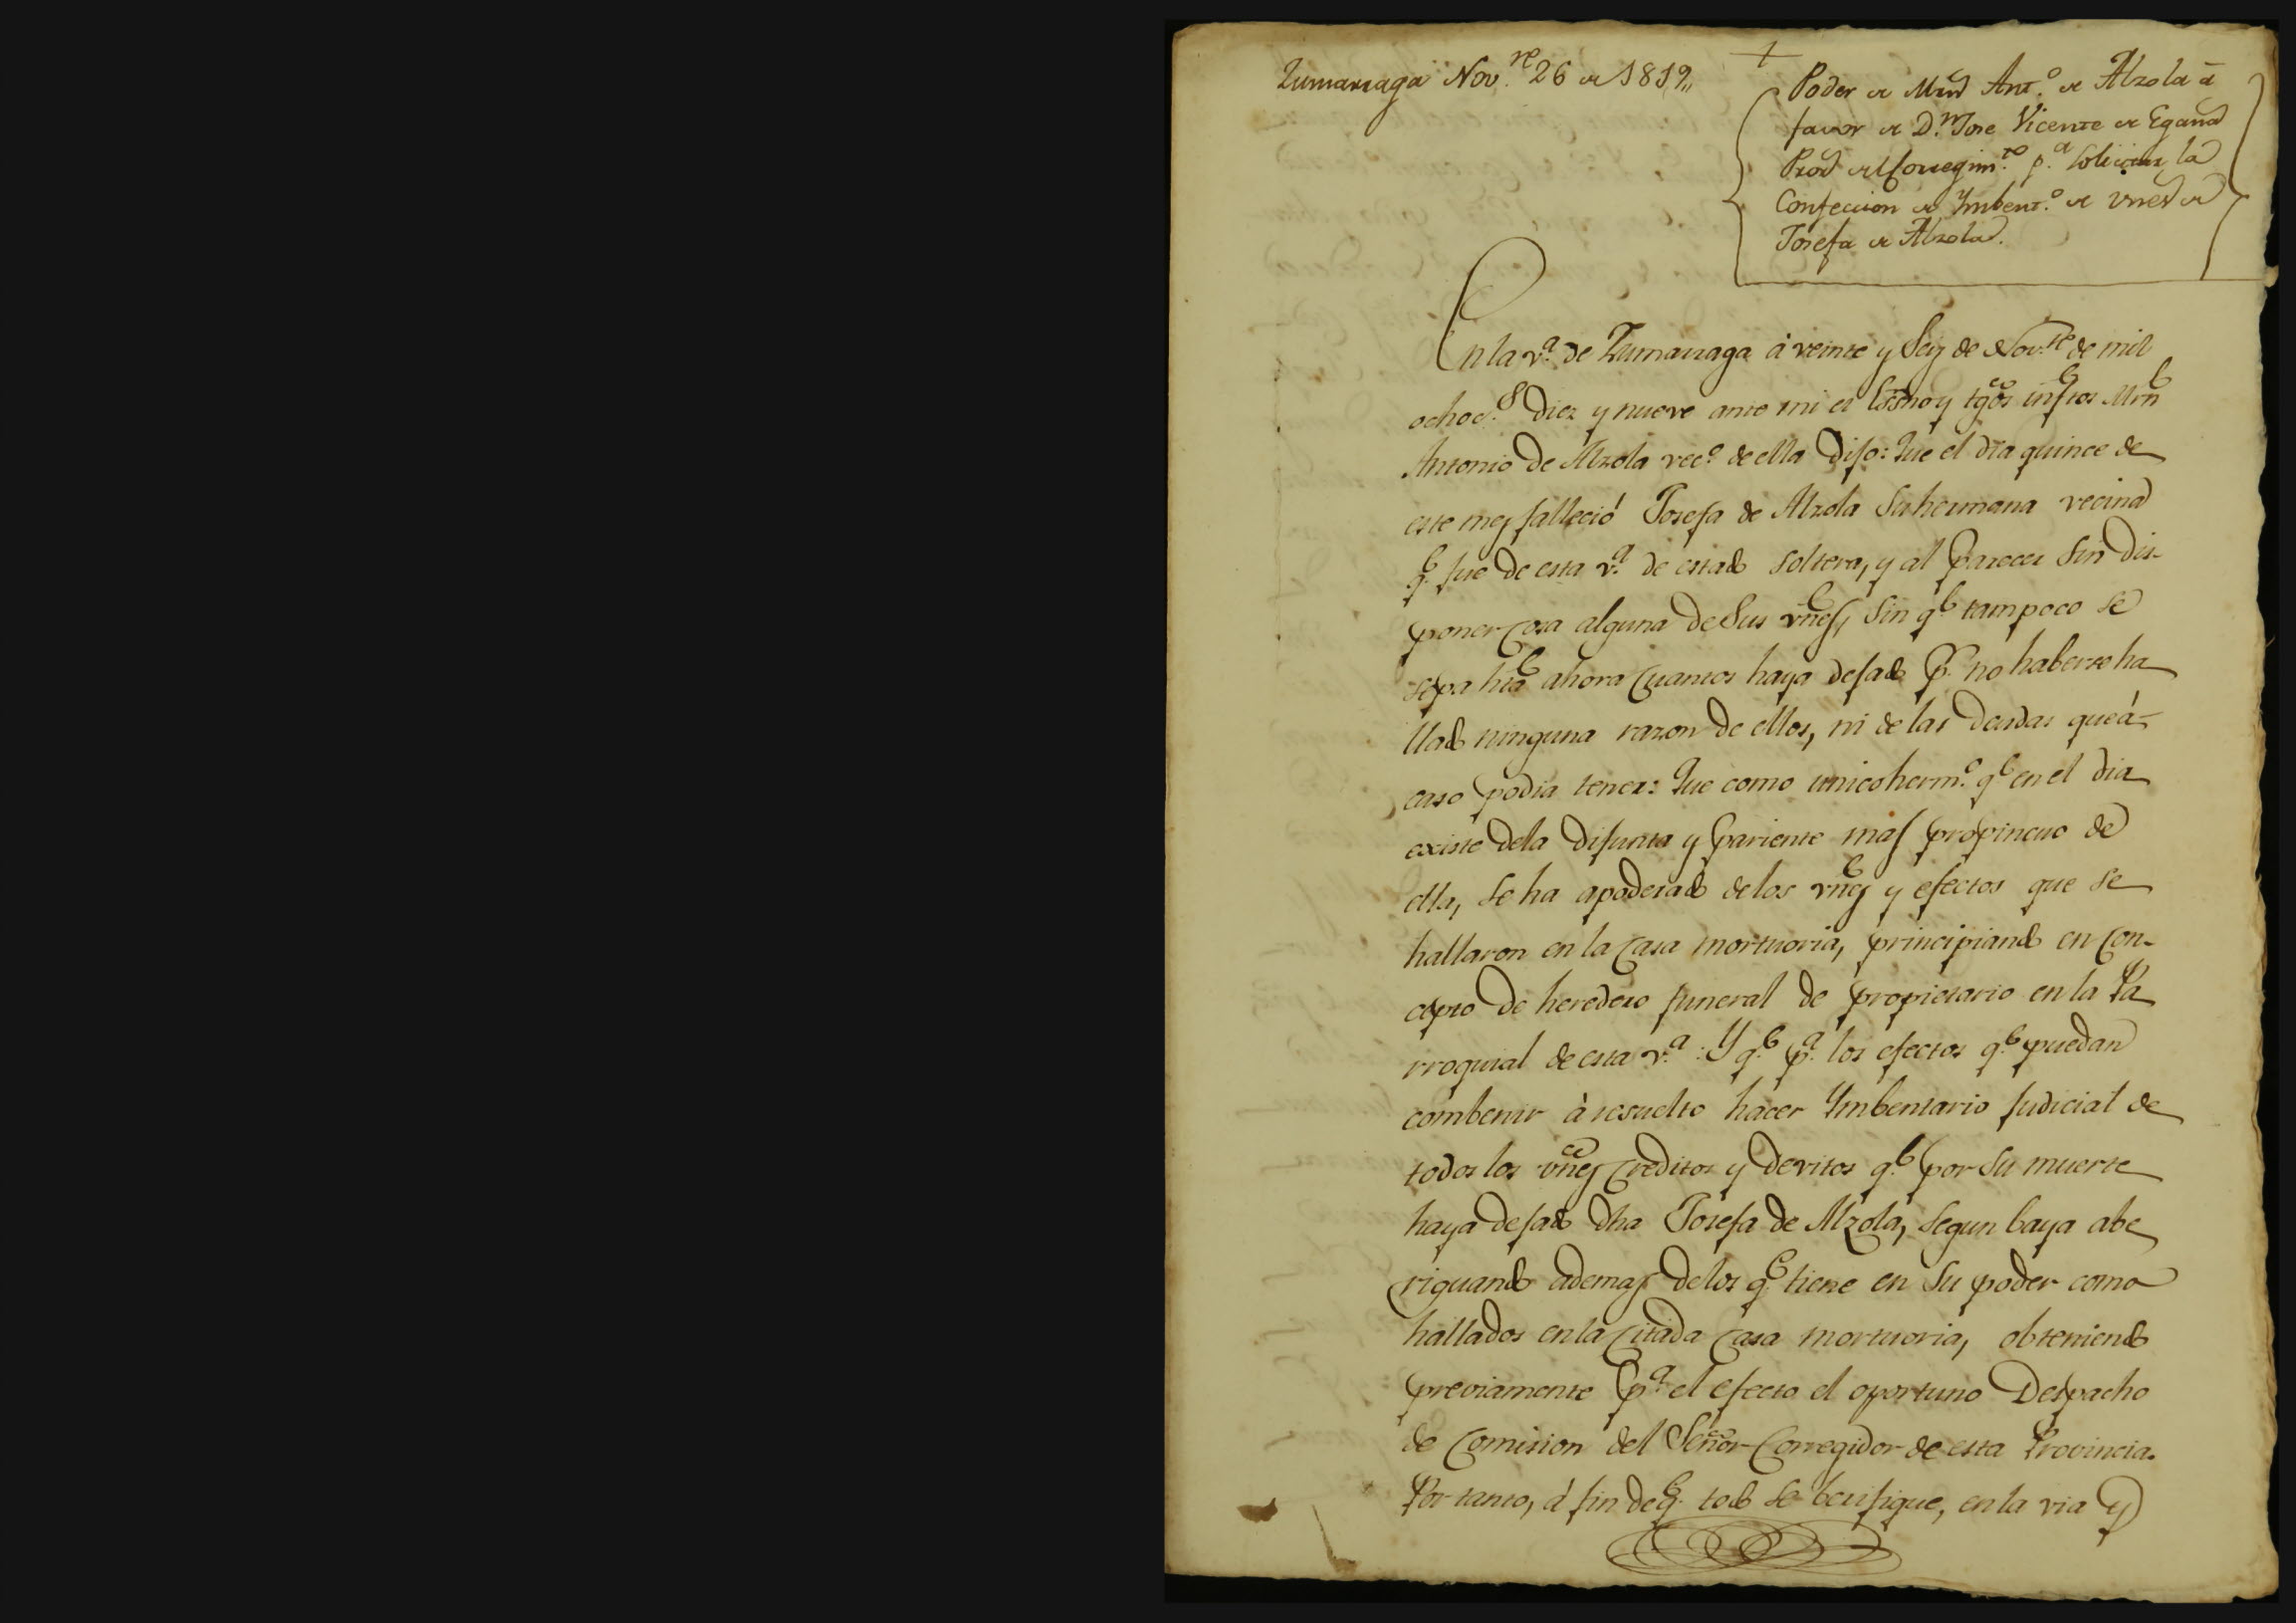 Zumarraga Nov.re 26 de 1819,,
+
Poder de Mrn Ant.o de Alzola á
favor de D.n Jose Vicente de Egaña
Pror del Corregim.to p.a solicitar la
Confeccion de Ymbent.o de vnes de
Josefa de Alzola.
En la v.a de Zumarraga á veinte y seis de Nov.re de mil
ochoc.s diez y nueve ante mi el Essno y tgos infros Mrn
Antonio de Alzola vec.o de ella Dijo: Que el dia quince de
este mes falleció Josefa de Alzola su hermana vecina
q.e fue de esta v.a de estado soltera, y al parecer sin dis-
poner cosa alguna de sus vnes, sin q.e tampoco se
sepa hta ahora cuantos haya dejado p.r no haberse ha
llado ninguna razon de ellos, ni de las deudas que á-
caso podia tener: Que como unico herm.o q.e en el dia
existe dela difunta y pariente mas propincuo de
ella, se ha apoderado delos vnes y efectos que se
hallaron en la casa mortuoria, principiando en con-
cepto de heredero funeral de propietario en la Pa
rroquial de esta v.a: Y q.e p.a los efectos q.e puedan
combenir à resuelto hacer Ymbentario Judicial de
todos los vnes creditos y devitos q.e por su muerte
haya dejado dha Josefa de Alzola, segun baya abe
riguando ademas delos q.e tiene en su poder como
hallados en la citada casa mortuoria, obteniendo
previamente p.a el efecto el oportuno Despacho
de Comision del Señor Corregidor de esta Provincia.
Por tanto, á fin de q.e todo se berifique, en la via y